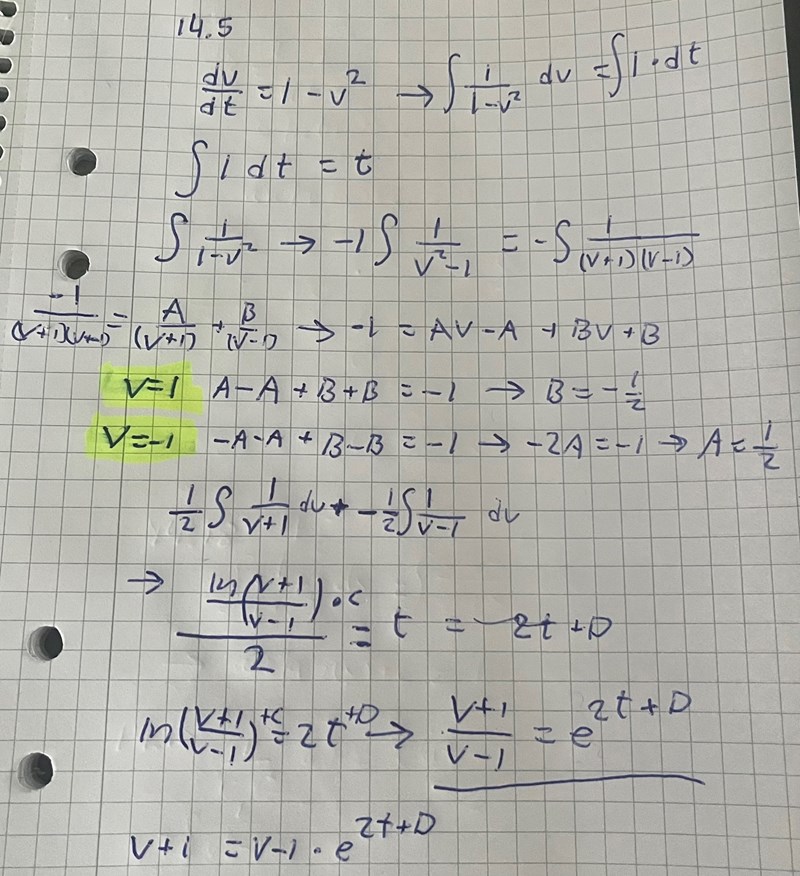 14.5
dv/dt = 1 - v² → ∫ 1/(1-v²) dv = ∫ 1·dt
∫ 1 dt = t
∫ 1/(1-v²) → -1 ∫ 1/(v²-1) = -∫ 1/((v+1)(v-1))
-1/((v+1)(v-1)) = A/(v+1) + B/(v-1) → -1 = AV - A + BV + B
V=1 A-A + B+B = -1 → B = -1/2
V=-1 -A-A + B-B = -1 → -2A = -1 → A = 1/2
1/2 ∫ 1/(v+1) dv + -1/2 ∫ 1/(v-1) dv
→ (ln((v+1)/(v-1)) · c)/2 = t = 2t + D
ln((v+1)/(v-1)) + c = 2t + D → (v+1)/(v-1) = e^(2t+D)
v+1 = v-1 · e^(2t+D)